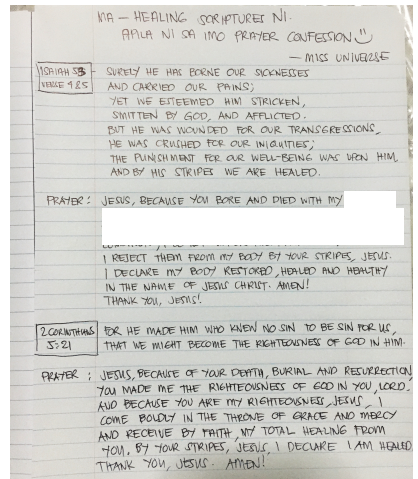 MA - HEALING SCRIPTURES NI.
APILA NI SA IMO PRAYER CONFESSION
- MISS UNIVERSE
ISAIAH 53 - SURELY HE HAS BORNE OUR SICKNESSES
VERSE 4&5 AND CARRIED OUR PAINS;
YET WE ESTEEMED HIM STRICKEN,
SMITTEN BY GOD, AND AFFLICTED.
BUT HE WAS WOUNDED FOR OUR TRANSGRESSIONS,
HE WAS CRUSHED FOR OUR INIQUITIES;
THE PUNISHMENT FOR OUR WELL-BEING WAS UPON HIM,
AND BY HIS STRIPES WE ARE HEALED.
PRAYER: JESUS, BECAUSE YOU BORE AND DIED WITH MY
I REJECT THEM FROM MY BODY BY YOUR STRIPES, JESUS.
I DECLARE MY BODY RESTORED, HEALED AND HEALTHY
IN THE NAME OF JESUS CHRIST. AMEN!
THANK YOU, JESUS!
2 CORINTHIANS FOR HE MADE HIM WHO KNEW NO SIN TO BE SIN FOR US,
5:21 THAT WE MIGHT BECOME THE RIGHTEOUSNESS OF GOD IN HIM.
PRAYER: JESUS, BECAUSE OF YOUR DEATH, BURIAL AND RESURRECTION
YOU MADE ME THE RIGHTEOUSNESS OF GOD IN YOU, LORD.
AND BECAUSE YOU ARE MY RIGHTEOUSNESS, JESUS, I
COME BOLDLY IN THE THRONE OF GRACE AND MERCY
AND RECEIVE BY FAITH, MY TOTAL HEALING FROM
YOU. BY YOUR STRIPES, JESUS, I DECLARE I AM HEALED.
THANK YOU, JESUS. AMEN!